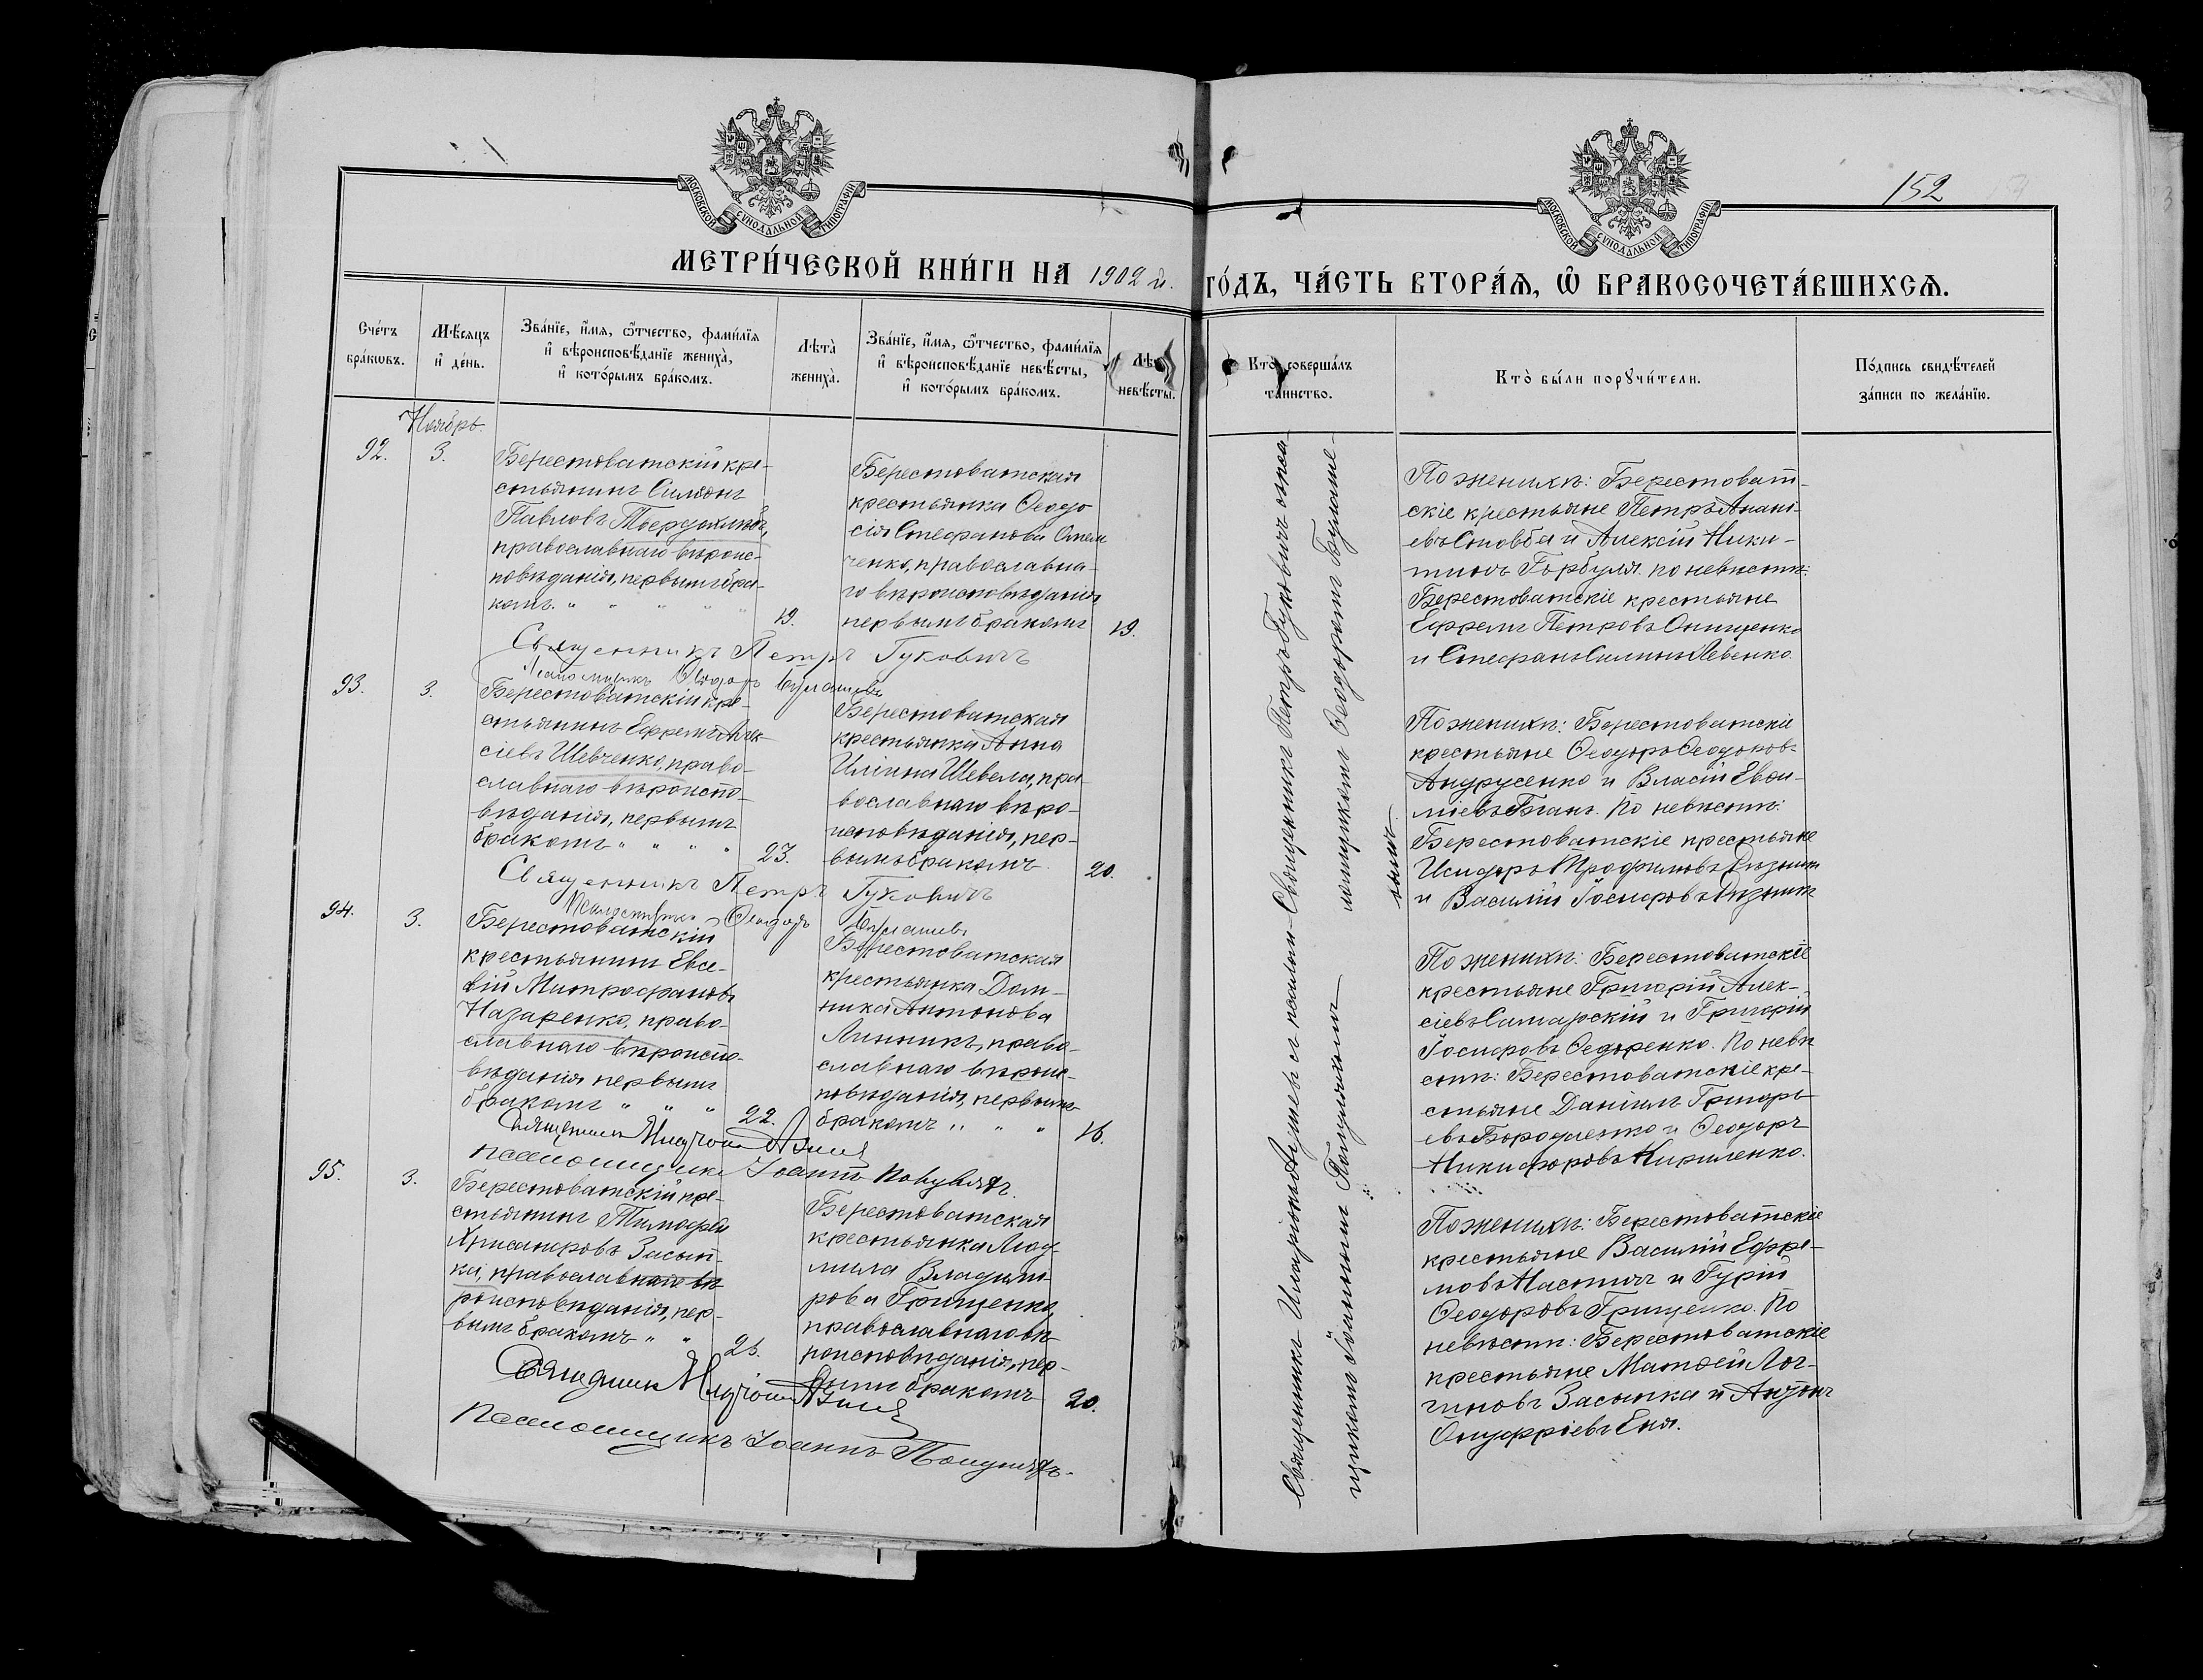 МОСКОВСКОЙ СУНОДАЛЬНОЙ ТИПОГРАФІИ
МОСКОВСКОЙ СУНОДАЛЬНОЙ ТИПОГРАФІИ
152
МЕТРИ́ЧЕСКОЙ КНИ́ГИ НА 1902 й.
ГО́ДЪ, ЧА́СТЬ ВТОРА́Ѧ, Ѽ БРАКОСОЧЕТА́ВШИХСѦ.
Сче́тъ
бра́кωвъ.
Мѣ́сяцъ
и҆ де́нь.
Зва́нїе, и҆́мѧ, ѻ҆́тчество, фами́лїѧ
и҆ вѣроисповѣ́данїе жениха̀,
и҆ кото́рымъ бра́комъ.
Лѣ́та̀
жениха̀.
Зва́нїе, и҆́мѧ, ѻ҆́тчество, фами́лїѧ
и҆ вѣроисповѣ́данїе невѣ́сты,
и҆ кото́рымъ бра́комъ.
Лѣ
невѣ́сты.
Кто̀ соверша́лъ
та́инство.
Кто̀ бы́ли порꙋчи́тели.
По́дпись свидѣ́телей
за́писи по жела́нїю.
Ноябрь.
92.
3.
Берестоватскій кре-
стьянинъ Симеонъ
Павловъ Твердохлѣбъ,
православнаго вѣроис-
повѣданія, первымъ бра-
комъ. " " " " "
19.
Берестоватская
крестьянка Ѳеодо
сія Стефанова Омель
ченко, православна-
го вѣроисповѣданія
первымъ бракомъ
19.
По женихѣ: Берестоват-
скіе крестьяне Петръ Анані-
евъ Стовба и Алексій Ники-
тинъ Горбуля. по невѣстѣ:
Берестоватскіе крестьяне
Ефремъ Петровъ Онищенко
и Стефанъ Силинъ Левенко.
Священникъ Петръ Гуковичъ
Псаломщикъ Ѳеодоръ Булашевъ
93.
3.
Берестоватскій кре-
стьянинъ Ефремъ Алек-
сіевъ Шевченко, право-
славнаго вѣроиспо-
вѣданія, первымъ
бракомъ " " " "
23.
Берестоватская
крестьянка Анна
Иліина Шевела, пра-
вославнаго вѣро-
исповѣданія, пер-
вымъ бракомъ
20.
По женихѣ: Берестоватскіе
крестьяне Ѳеодоръ
Андрусенко и Власій Евѳи-
міевъ По невѣстѣ:
Берестоватскіе крестьяне
Исидоръ Трофимовъ
и Василій Іосифовъ
Священникъ Петръ Гуковичъ
Псаломщикъ Ѳеодоръ Булашевъ
94.
3.
Берестоватскій
крестьянинъ Евсе-
вій Митрофановъ
Назаренко, право-
славнаго вѣроиспо-
вѣданія первымъ
бракомъ " " "
22.
Берестоватская
крестьянка Дом-
ника Антонова
Линникъ, право-
славнаго вѣроис-
повѣданія, первымъ
бракомъ " " "
16.
По женихѣ: Берестоватскіе
крестьяне Григорій Алек-
сіевъ Самарскій и Григорій
Іосифовъ Ѳедоренко. По невѣ
стѣ: Берестоватскіе кре-
стьяне Даніилъ Григорь-
евъ Бородченко и Ѳеодоръ
Никифоровъ Кириленко.
Священникъ Иларіонъ
Псаломщикъ Іоаннъ
95.
3.
Берестоватскій кре-
стьянинъ Тимофей
Хрисанфовъ Засып-
ка, православнаго вѣ
роисповѣданія, пер-
вымъ бракомъ " "
Берестоватская
крестьянка Люд-
мила Владими-
рова Грищенко,
православнаго вѣ
роисповѣданія, пер-
вымъ бракомъ
20.
По женихѣ: Берестоватскіе
крестьяне Василій Ефре-
мовъ и Гурій
Ѳеодоровъ Грищенко. По
невѣстѣ: Берестоватскіе
крестьяне Матѳей Лог-
гиновъ Засыпка и Антонъ
Онуфріевъ Еня.
Священникъ Иларіонъ
Псаломщикъ Іоаннъ
Священникъ Иларіонъ и Священникъ Петръ Гуковичъ
щикомъ Іоанномъ Ѳеодоромъ Булаше-
вымъ